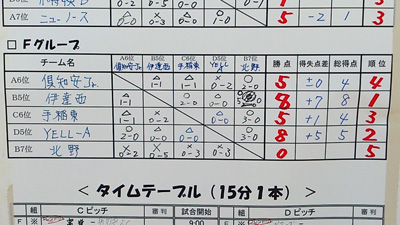 A7位 ニューノース 5 -2 1 3
□Fグループ
チーム名 A6位 倶知安Jr. B5位 伊達西 C6位 手稲東 D5位 YELL-A B7位 北野 勝点 得失点差 総得点 順位
A6位 倶知安Jr. △ 1-1 △ 1-1 × 0-2 ○ 2-0 5 ±0 4 4
B5位 伊達西 △ 1-1 ○ 2-0 △ 0-0 8 +7 8 1
C6位 手稲東 △ 1-1 × 0-2 △ 0-0 ○ 3-0 5 +1 4 3
D5位 YELL-A ○ 2-0 △ 0-0 △ 0-0 ○ 3-0 8 +5 5 2
B7位 北野 × 0-2 × 0-5 × 0-3 × 0-3 0 5
<タイムテーブル(15分1本)>
組 Cピッチ 審判 試合開始 組 Dピッチ 審判
9:00